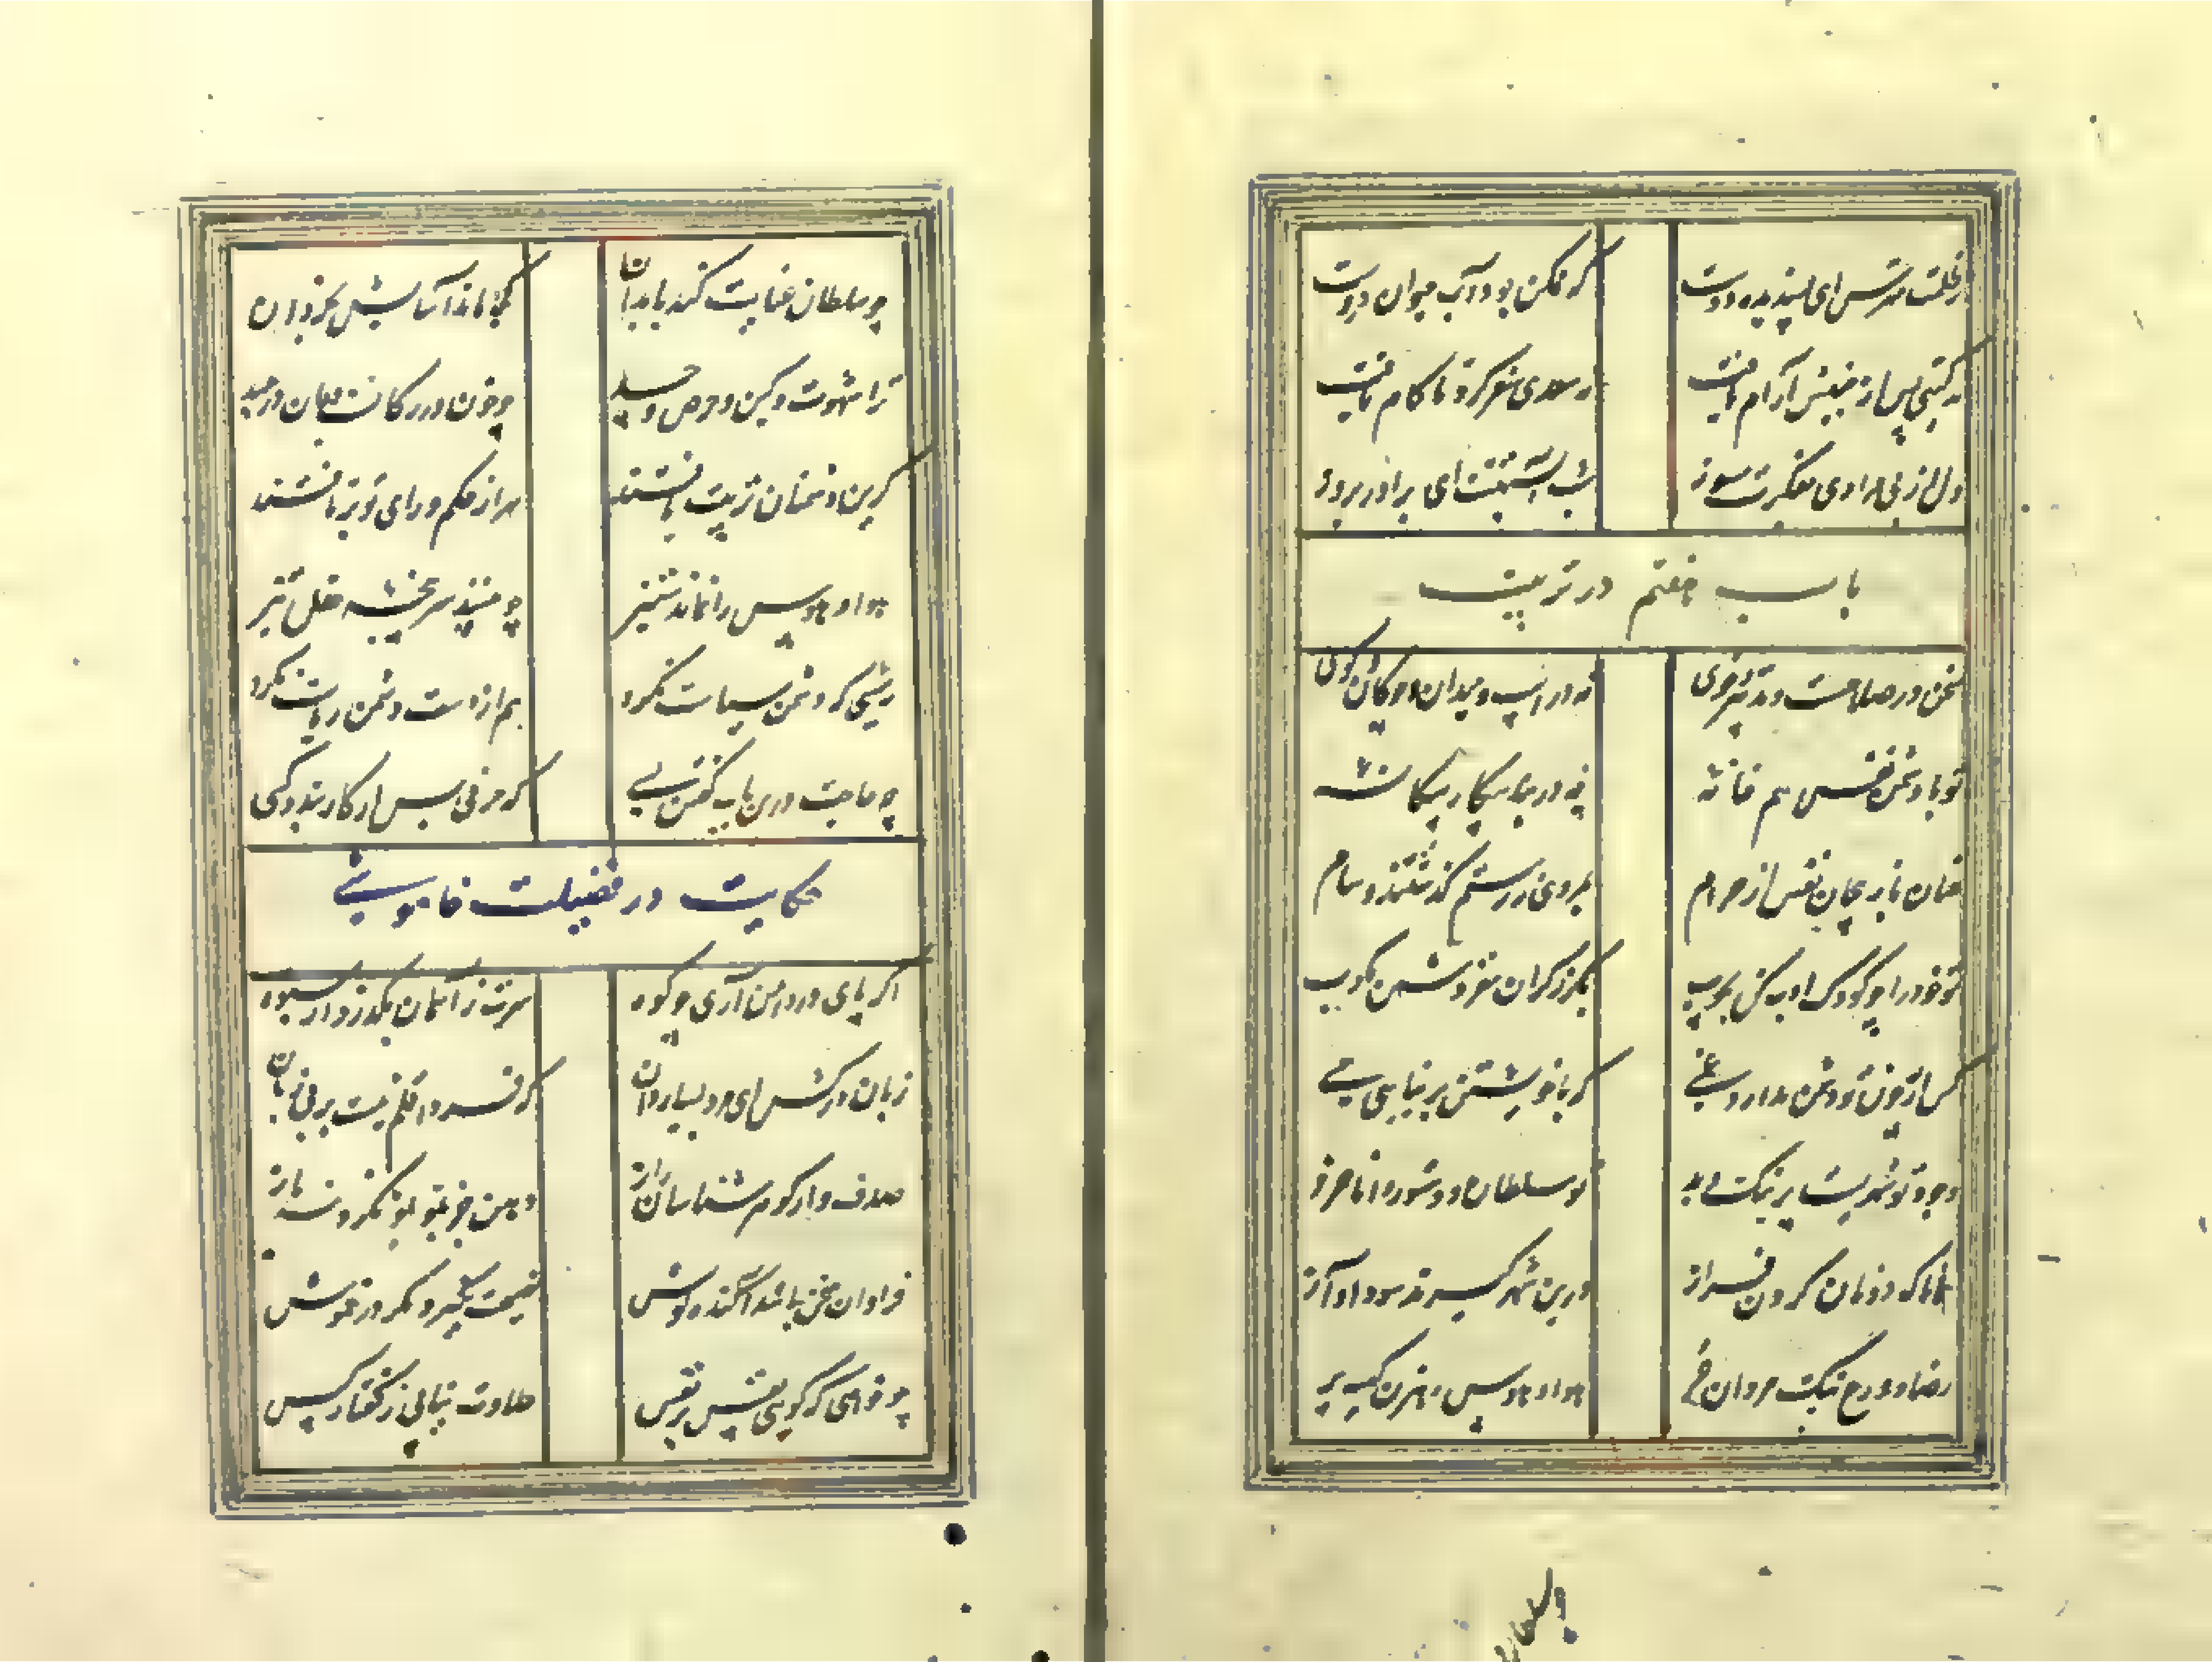 ز ظلمت مترس ای پسندیده دوست که ممکن بود آب حیوان دروست
نه گیتی پس از جنبش آرام یافت نه سعدی سفر کرد تا کام یافت
دل از بی مرادی بفکرت مسوز شب آبستنست ای برادر بروز
باب هفتم در تربیت
سخن در صلاحست و تدبیر و خوی نه در اسب و میدان و چوکان و کوی
تو با دشمن نفس هم خانهٔ چه در بند پیکار بیکانهٔ
عنان باز پیچان نفس از حرام بمردی ز رستم گذشتند و سام
تو خود را چو کودک ادب کن بچوب بکرز کران مغز دشمن مکوب
کس از چون تو دشمن ندارد غمی که با خویشتن بر نیایی همی
وجود تو شهریست پر نیک و بد تو سلطان و دستور دانا خرد
همانا که دونان کردن فراز درین شهر کبرند و سودا و آز
رضا و ورع نیک مردان حر هوا و هوس رهزن کیسه بر
چو سلطان عنایت کند با بدان کجا ماند آسایش بخردان
ترا شهوت و کین و حرص و حسد چو خون در رکانست و جان در جسد
کر این دشمنان تربیت یافتند سر از حکم و رای تو بر تافتند
هوا و هوس را نماند ستیز چو بینند سر پنجه عقل تیز
رئیسی که دشمن سیاست نکرد هم از دست دشمن ریاست نکرد
چه حاجت درین باب گفتن بسی که حرفی بس ار کار بندد کسی
حکایت در فضیلت خاموشی
اکر پای در دامن آری چو کوه سرت ز آسمان بگذرد از شکوه
زبان درکش ای مرد بسیار دان که فردا قلم نیست بر بی زبان
صدف وار کوهر شناسان راز دهن جز بلؤلؤ نکردند باز
فراوان سخن باشد آکنده کوش نصیحت نکیرد مکر در خموش
چو خواهی که کویی نفس بر نفس حلاوت نیابی ز گفتار کس